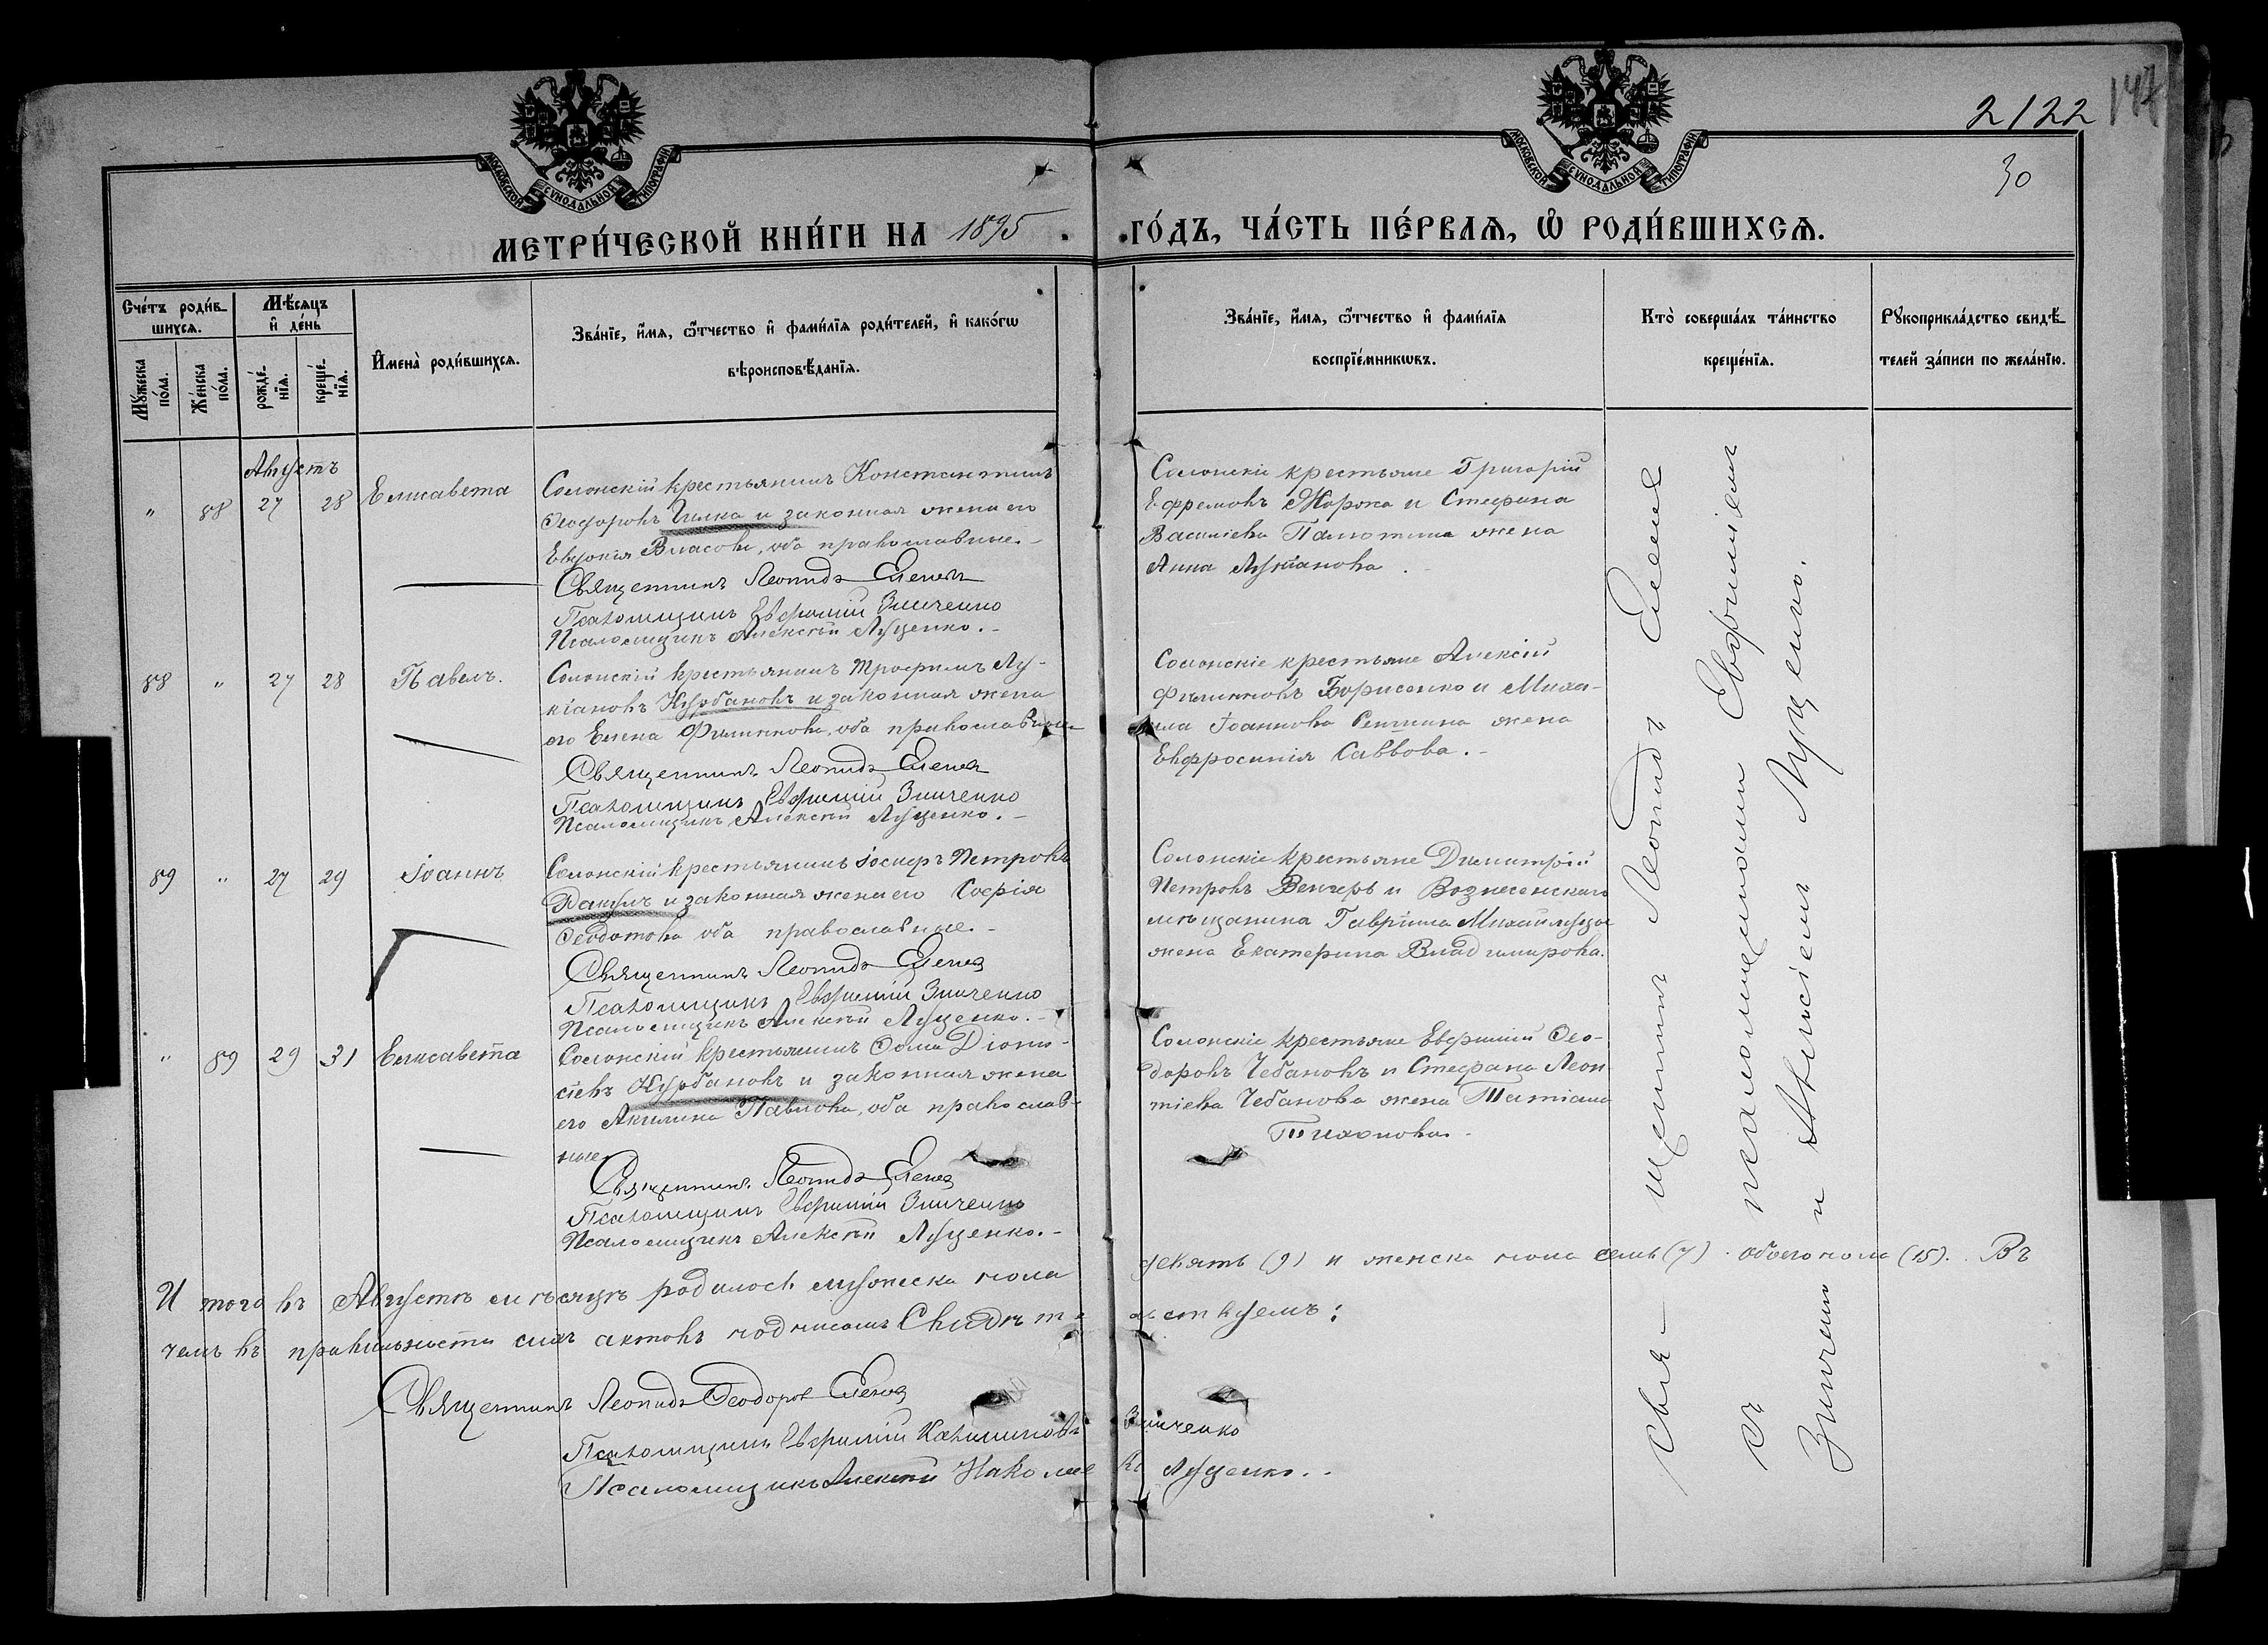 2122
147
30
МОСКОВСКОЙ СѴНОДАЛЬНОЙ ТИПОГРАФІИ
МОСКОВСКОЙ СѴНОДАЛЬНОЙ ТИПОГРАФІИ
МЕТРИ́ЧЕСКОЙ КНИ́ГИ НА 1895 ГО́ДЪ, ЧА́СТЬ ПЕ́РВАѦ, Ѡ҆ РОДИ́ВШИХСѦ.
Сче́тъ роди́в-
шихсѧ.
Мꙋ́жеска по́ла.
Же́нска по́ла.
Мѣ́сѧцъ и҆ де́нь
рожде́-нїѧ.
креще́-нїѧ.
И҆мена̀ роди́вшихсѧ.
Зва́нїе, и҆́мѧ, ѻ҆́тчество и҆ фами́лїѧ роди́телей, и҆ како́гѡ
вѣроисповѣ́данїѧ.
Зва́нїе, и҆́мѧ, ѻ҆́тчество и҆ фами́лїѧ
воспрїе́мникѡвъ.
Кто̀ соверша́лъ та́инство
креще́нїѧ.
Рꙋкоприкла́дство свидѣ́-
телей за́писи по жела́нїю.
Августъ
" 88 27 28 Елисавета
Солонскій крестьянинъ Константинъ
Ѳеодоровъ Гилка и законная жена его
Евдокія Власова, оба православные.-
Священникъ Леонидъ Еленев
Псаломщикъ Евфимій Зинченко
Псаломщикъ Алексѣй Луценко.-
Солонскіе крестьяне Григорій
Ефремовъ Жоржа и Стефана
Василіева жена
Анна Лукіанова.
88 " 27 28 Павелъ.
Солонскій крестьянинъ Трофимъ Лу-
кіановъ Курбановъ и законная жена
его Елена Филиппова, оба православные
Священникъ Леонидъ Еленев
Псаломщикъ Евфимій Зинченко
Псаломщикъ Алексѣй Луценко.-
Солонскіе крестьяне Алексій
Филипповъ Борисенко и Миха-
ила Іоаннова жена
Евфросинія Саввова.-
89 " 27 29 Іоаннъ
Солонскій крестьянинъ Іосифъ Петровъ
и законная жена его Софія
Ѳеодотова оба православные.-
Священникъ Леонидъ Еленев
Псаломщикъ Евфимій Зинченко
Псаломщикъ Алексѣй Луценко.-
Солонскіе крестьяне Димитрій
Петровъ Венгеръ и Вознесенскаго
мѣщанина Гавріила
жена Екатерина Владимирова.
" 89 29 31 Елисавета
Солонскій крестьянинъ Ѳома Діони-
сіевъ Курбановъ и законная жена
его Акилина Павлова, оба православ-
ные
Священникъ Леонидъ Еленев
Псаломщикъ Евфимій Зинченко
Псаломщикъ Алексѣй Луценко.-
Солонскіе крестьяне Евфимій Ѳео-
доровъ Чебановъ и Стефана Леон-
тіева Чебанова жена Татіана
Тихонова.-
Свя-щенникъ Леонидъ Еленев
съ псаломщиками Евфиміемъ
Зинченко и Алексіемъ Луценко.
И того въ Августѣ мѣсяцѣ родилось мужеска пола девять (9) и женска пола семь (7). обоего пола (15). Въ
чемъ въ правильности сихъ актовъ подписомъ Свидѣтельствуемъ:
Священникъ Леонидъ Ѳеодоров Еленев
Псаломщикъ Евфимій Зинченко
Псаломщикъ Алексѣй Луценко.-